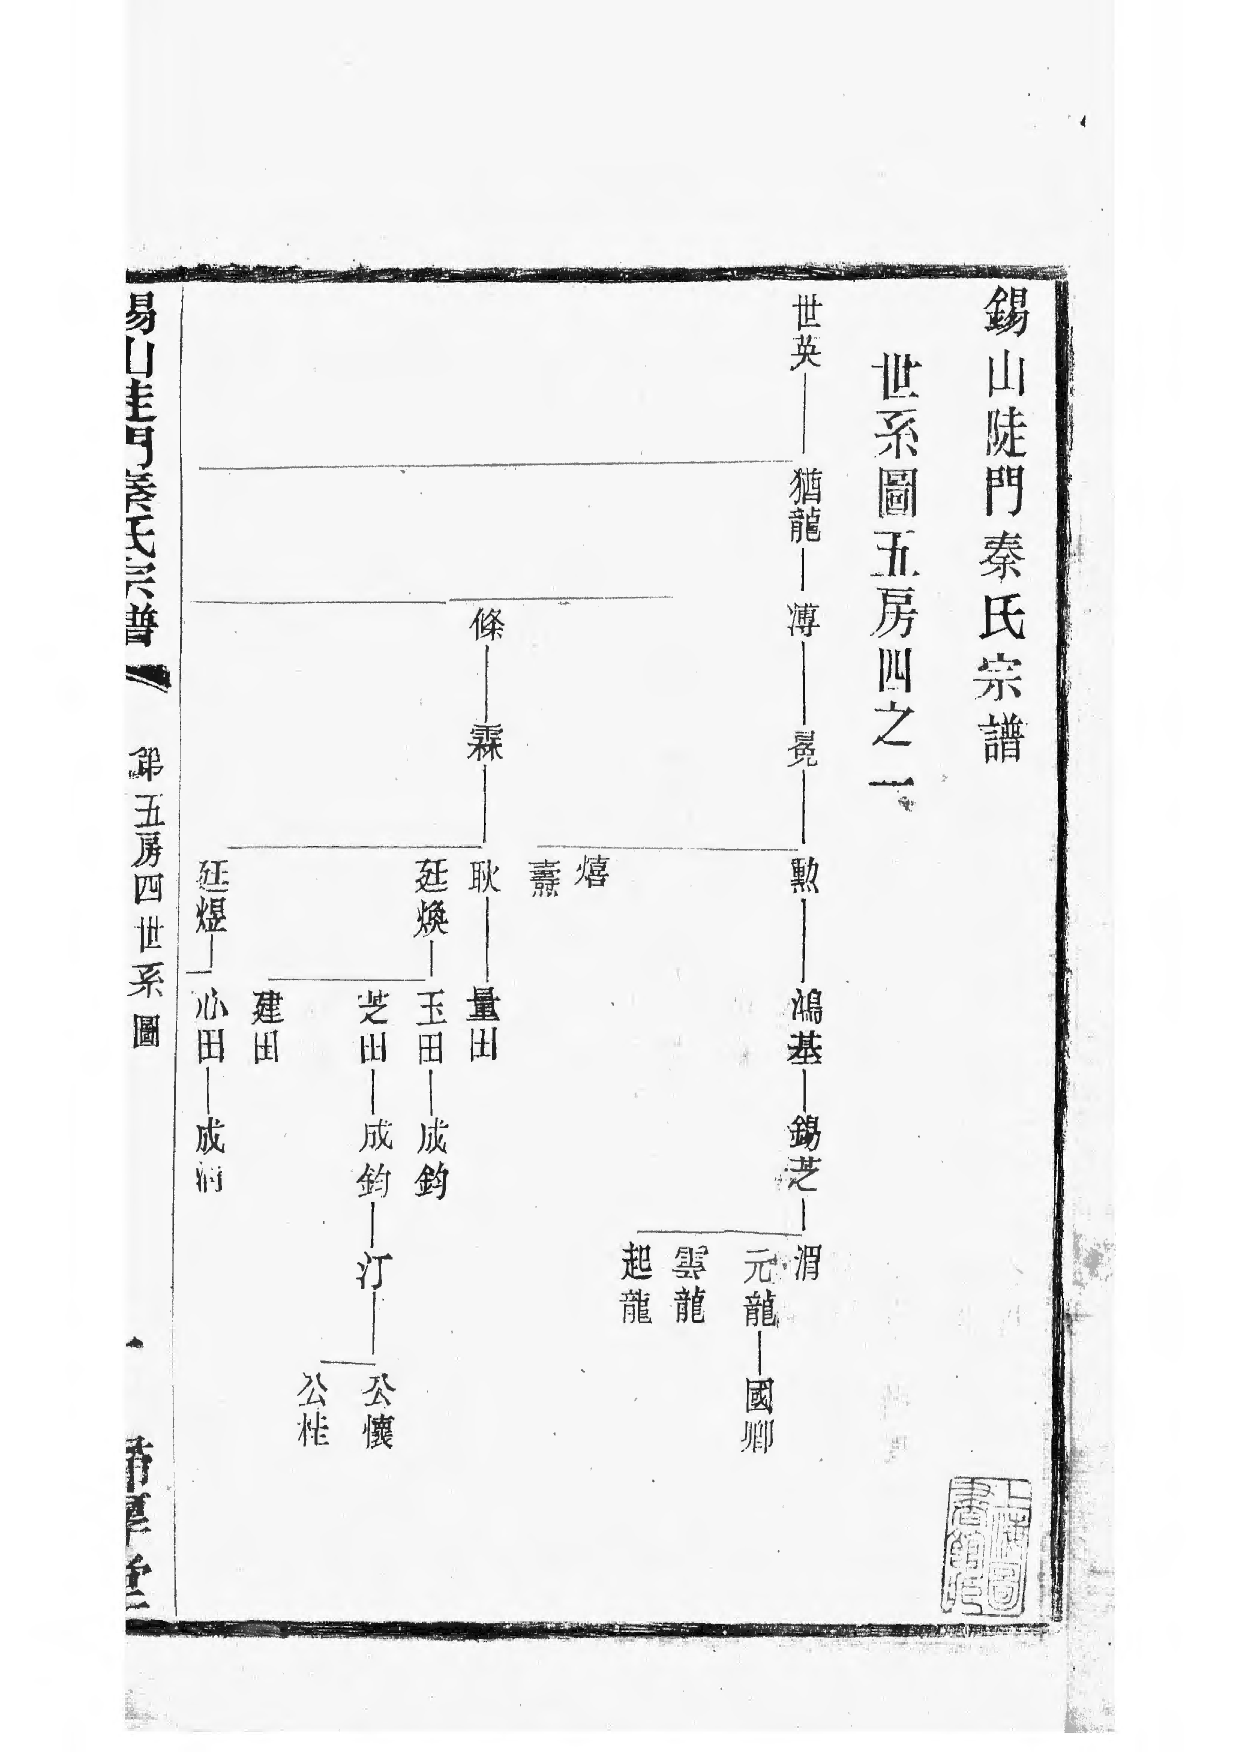 錫山陡門秦氏宗譜
世系圖五房四之一
世英
猶龍
溥
冕
勲
鴻基
錫芝
渭
元龍
國卿
雲龍
起龍
熺
燾
條
霖
耿
量田
廷煥
玉田
成鈞
芝田
成鈞
汀
公懷
公桂
建田
廷煜
心田
成潤
錫山陡門秦氏宗譜
第五房四世系圖
一
上海圖書館所